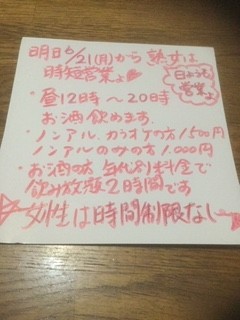 明日6/21(月)から 熟すは
時短営業よ
日ようも
営業よ
・昼12時〜20時
お酒飲めます.
・ノンアル.カラオケの方1500円
ノンアルのみの方1.000円
・お酒の方 年代別料金で
飲み放題2時間です
女性は時間制限なし